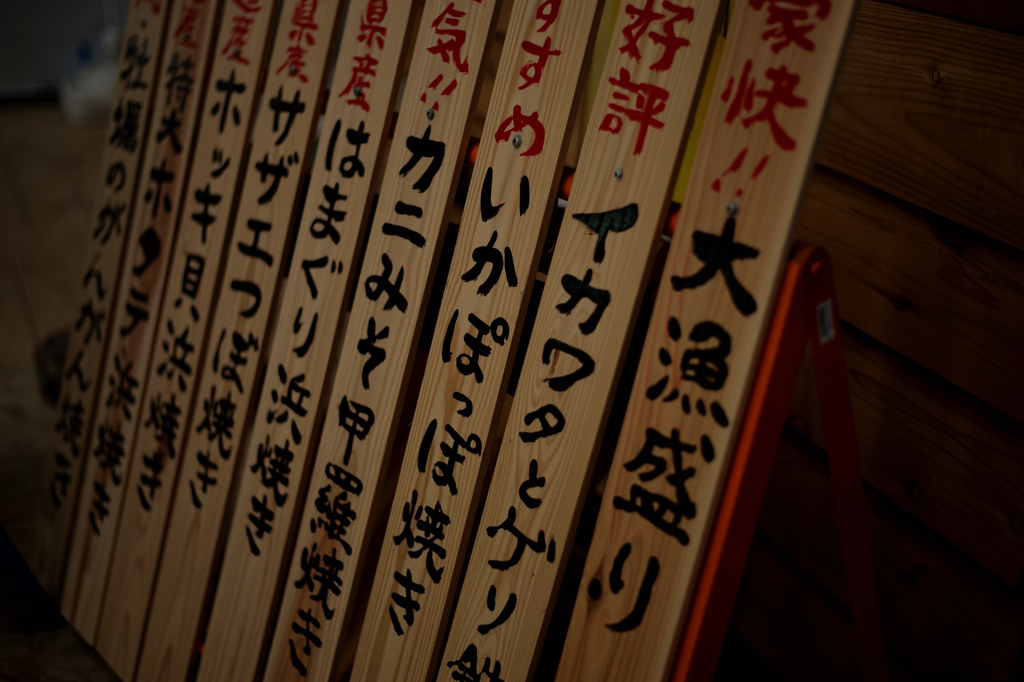 家快!!大漁盛り
好評イカワタとゲソ
すすめいかぽっぽ焼き
気!!カニみそ甲羅焼き
県産はまぐり浜焼き
県産サザエつぼ焼き
産ホッキ貝浜焼き
産特大ホタテ浜焼き
牡蠣のがんがん焼き